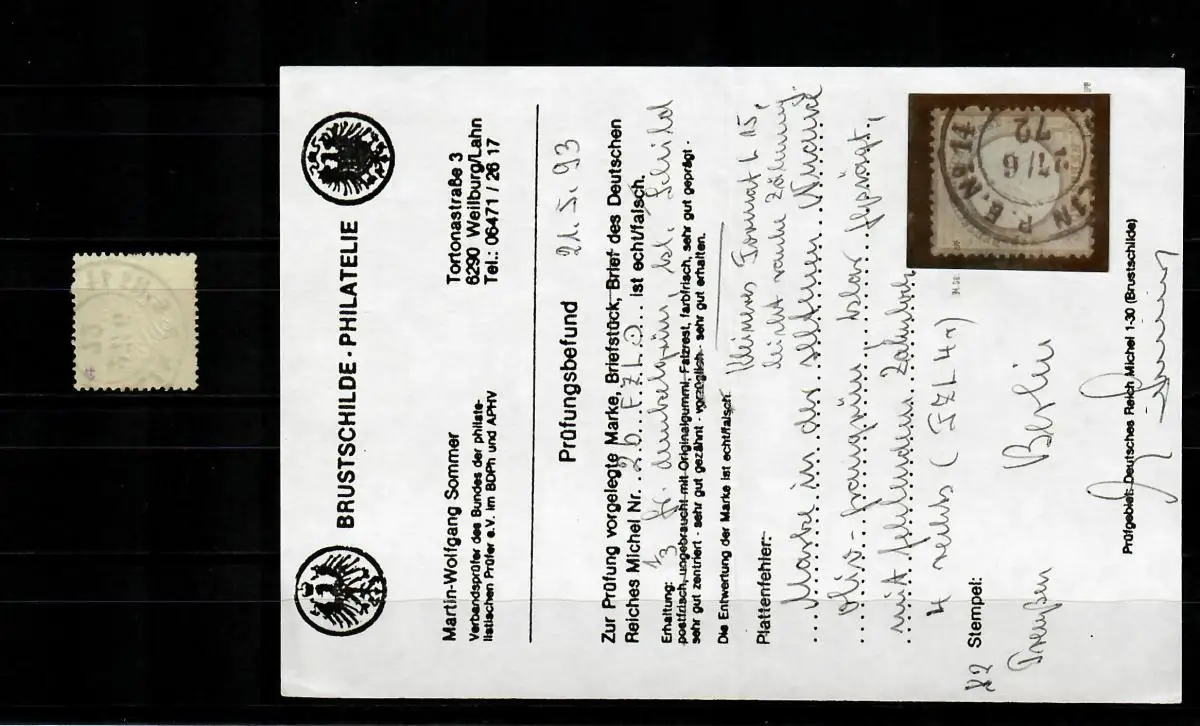 BRUSTSCHILDE · PHILATELIE
Martin-Wolfgang Sommer
Verbandsprüfer des Bundes der philate-
listischen Prüfer e.V. im BDPh und APHV
Tortonastraße 3
6290 Weilburg/Lahn
Tel.: 06471 / 26 17
Prüfungsbefund 21.5.93
Zur Prüfung vorgelegte Marke, Briefstück, Brief des Deutschen
Reiches Michel Nr. 2b FZL ist echt/falsch.
Erhaltung: 1/3 Gr. dunkelgrün, kl. Schild
postfrisch, ungebraucht mit Originalgummi, Falzrest, farbfrisch, sehr gut geprägt -
sehr gut zentriert - sehr gut gezähnt - vorzüglich - sehr gut erhalten.
Die Entwertung der Marke ist echt/falsch. kleineres Format L 15,
leicht rauhe Zähnung.
Plattenfehler:
Marke in der seltenen Nuance
oliv-braungrün klar geprägt,
mit fehlendem Zahnloch
4 rechts (FZL 4r)
82 Stempel:
Preußen Berlin
Prüfgebiet: Deutsches Reich Michel 1-30 (Brustschilde)
P. E. No 14
27/6
72